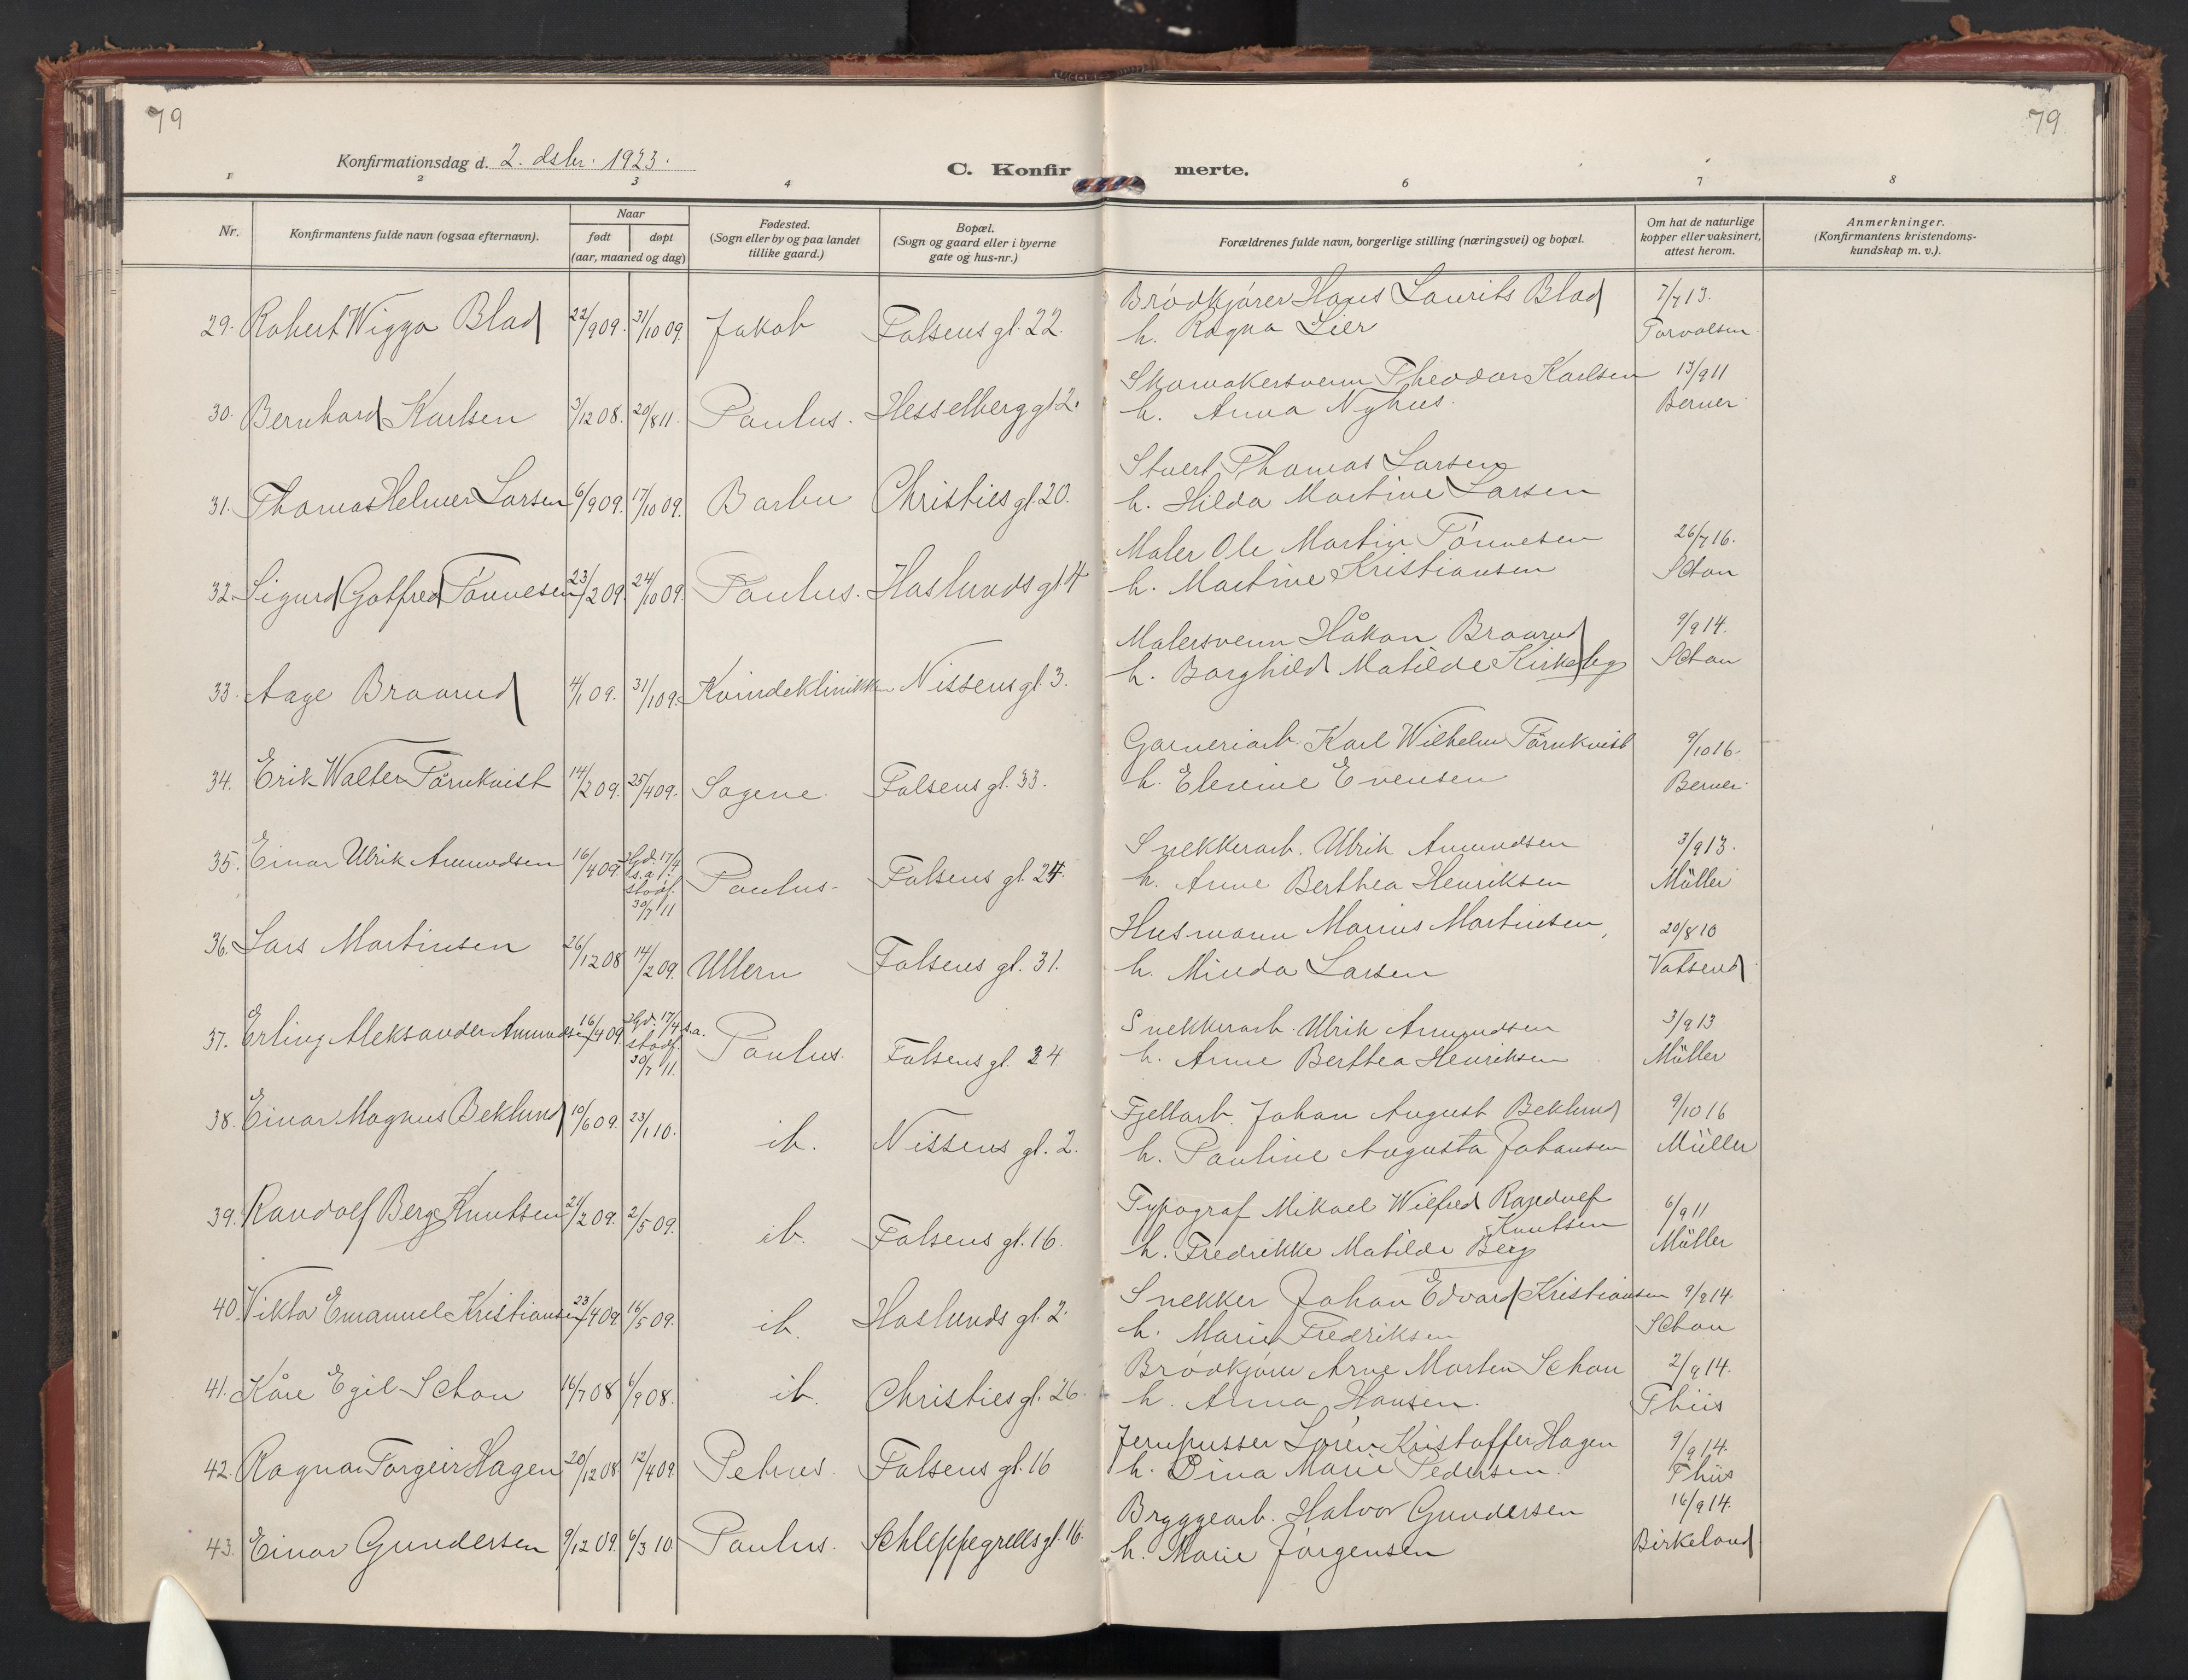 79
79
Konfirmationsdag d. 2. dsbr. 1923.
C. Konfirmerte.
1 2 3 4 5 6 7 8
Nr.
Konfirmantens fulde navn (ogsaa efternavn).
Naar
født
døpt
(aar, maaned og dag)
Fødested.
(Sogn eller by og paa landet
tillike gaard.)
Bopæl.
(Sogn og gaard eller i byerne
gate og hus-nr.)
Forældrenes fulde navn, borgerlige stilling (næringsvei) og bopæl.
Om hat de naturlige
kopper eller vaksinert,
attest herom.
Anmerkninger.
(Konfirmantens kristendoms-
kundskap m. v.).
29. Robert Wiggo Blad 22/9 09. 31/10 09. Jakob Falsens gt. 22. Brödkjörer Hans Laurits Blad 7/7 13.
h. Ragna Lier Torvalsen
30. Bernhard Karlsen 3/12 08. 20/8 11. Paulus. Hesselberg gt 2. Skomakersvenn Theodor Karlsen 13/9 11
h. Anna Nyhus. Berner
31. Thomas Helmer Larsen 6/9 09. 17/10 09. Barbu Christies gt. 20. Stuert Thomas Larsen
h. Hilda Martine Larsen
32. Sigurd Gotfred Tönnesen 23/2 09. 24/10 09. Paulus. Haslunds gt 4 Maler Ole Martin Tönnesen 26/7 16.
h. Martine Kristiansen Schou
33. Aage Braarud 4/1 09. 31/1 09. Kvindeklinikken Nissens gt. 3. Malersvenn Håkon Braarud 9/9 14.
h. Borghild Matilde Kirkeby Schou
34. Erik Walter Törnkvist 14/2 09. 25/4 09. Sagene Falsens gt. 33. Garveriarb. Karl Wilhelm Törnkvist 9/10 16.
h. Elevine Evensen Berner
35. Einar Ulrik Amundsen 16/4 09. Hjd. 17/4 s.a. stadf. 30/7 11 Paulus. Falsens gt. 24. Snekkerarb. Ulrik Amundsen 3/9 13.
h. Anne Berthea Henriksen Müller
36. Lars Martinsen 26/12 08 14/2 09. Ullern Falsens gt. 31. Husmann Marius Martinsen, 20/8 10
h. Minda Larsen Vatsend
37. Erling Aleksander Amundsen 16/4 09. Hjd. 17/4 s.a. stadf. 30/7 11. Paulus. Falsens gt. 24 Snekkerarb. Ulrik Amundsen 3/9 13
h. Anne Berthea Henriksen Müller
38. Einar Magnus Beklund 10/6 09. 23/1 10. ib. Nissens gt. 2. Fjellarb. Johan August Beklund 9/10 16
h. Pauline Augusta Johansen Müller
39. Randolf Berg Knutsen 21/2 09. 2/5 09. ib. Falsens gt. 16. Typograf Mikael Wilfred Randolf Knutsen 6/9 11
h. Fredrikke Matilde Berg Müller
40. Viktor Emanuel Kristiansen 23/4 09 16/5 09. ib. Haslunds gt. 2. Snekker Johan Edvard Kristiansen 9/9 14.
h. Marie Fredriksen Schou
41. Kåre Egil Schou 16/7 08 6/9 08. ib. Christies gt. 26. Brödkjörer Arne Morten Schou 2/9 14.
h. Anna Hansen. Thiis
42. Ragnar Torgeir Hagen 20/12 08 12/4 09 Petrus. Falsens gt. 16 Jernpusser Sören Kristoffer Hagen 9/9 14.
h. Dina Marie Pedersen. Thiis
43. Einar Gundersen 9/12 09. 6/3 10 Paulus. Schleppegrells gt. 16. Bryggearb. Halvor Gundersen 16/9 14.
h. Marie Jörgensen Birkeland